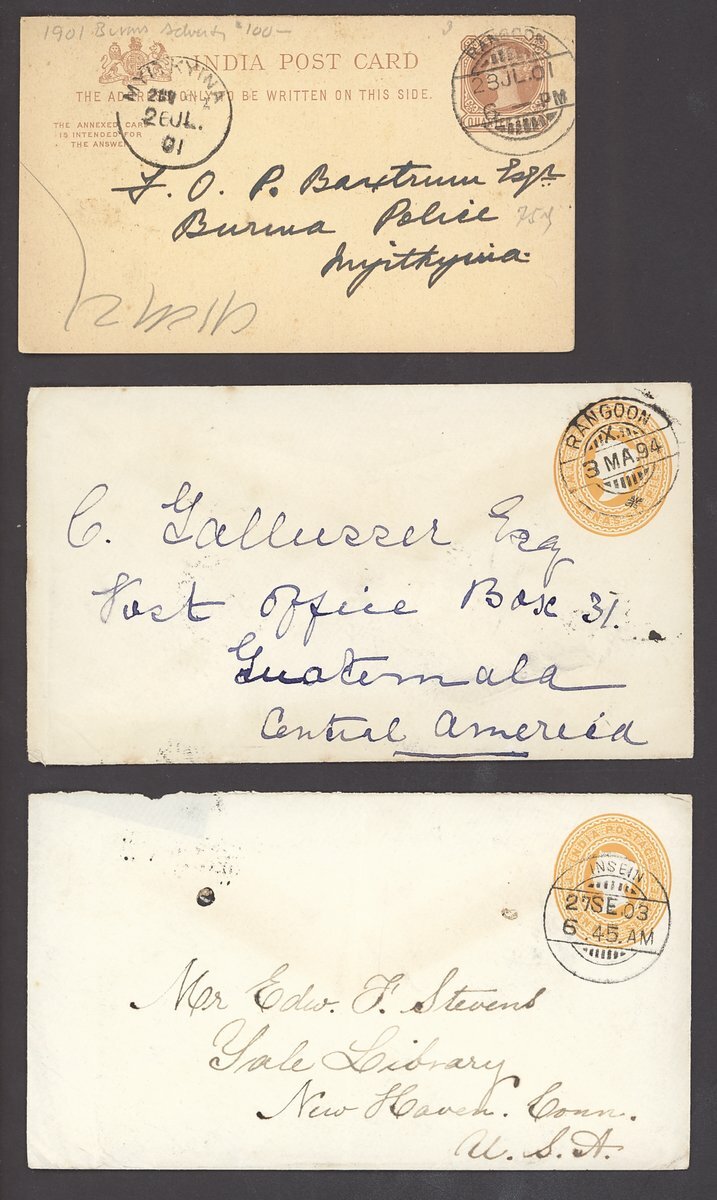 1901 Burma Advert $100-
INDIA POST CARD
THE ADDRESS ONLY TO BE WRITTEN ON THIS SIDE.
THE ANNEXED CARD
IS INTENDED FOR
THE ANSWER
MYITKYINA
26JL.
01
RANGOON
23JL.01
PM
QUA
F. O. P. Baxtrum Esqr
Burma Police
Myitkyina.
RANGOON
X
3 MA.94
C. Gallusser Esq
Post Office Box 31.
Guatemala
Central America
INDIA POSTAGE
INSEIN
27SE.03
6 .45.AM
Mr Edw. F. Stevens
Yale Library
New Haven. Conn.
U. S. A.